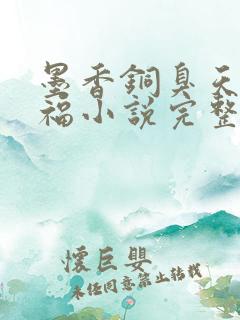 墨香銅臭天
福小說完整
懷巨嬰
未经同意禁止转载